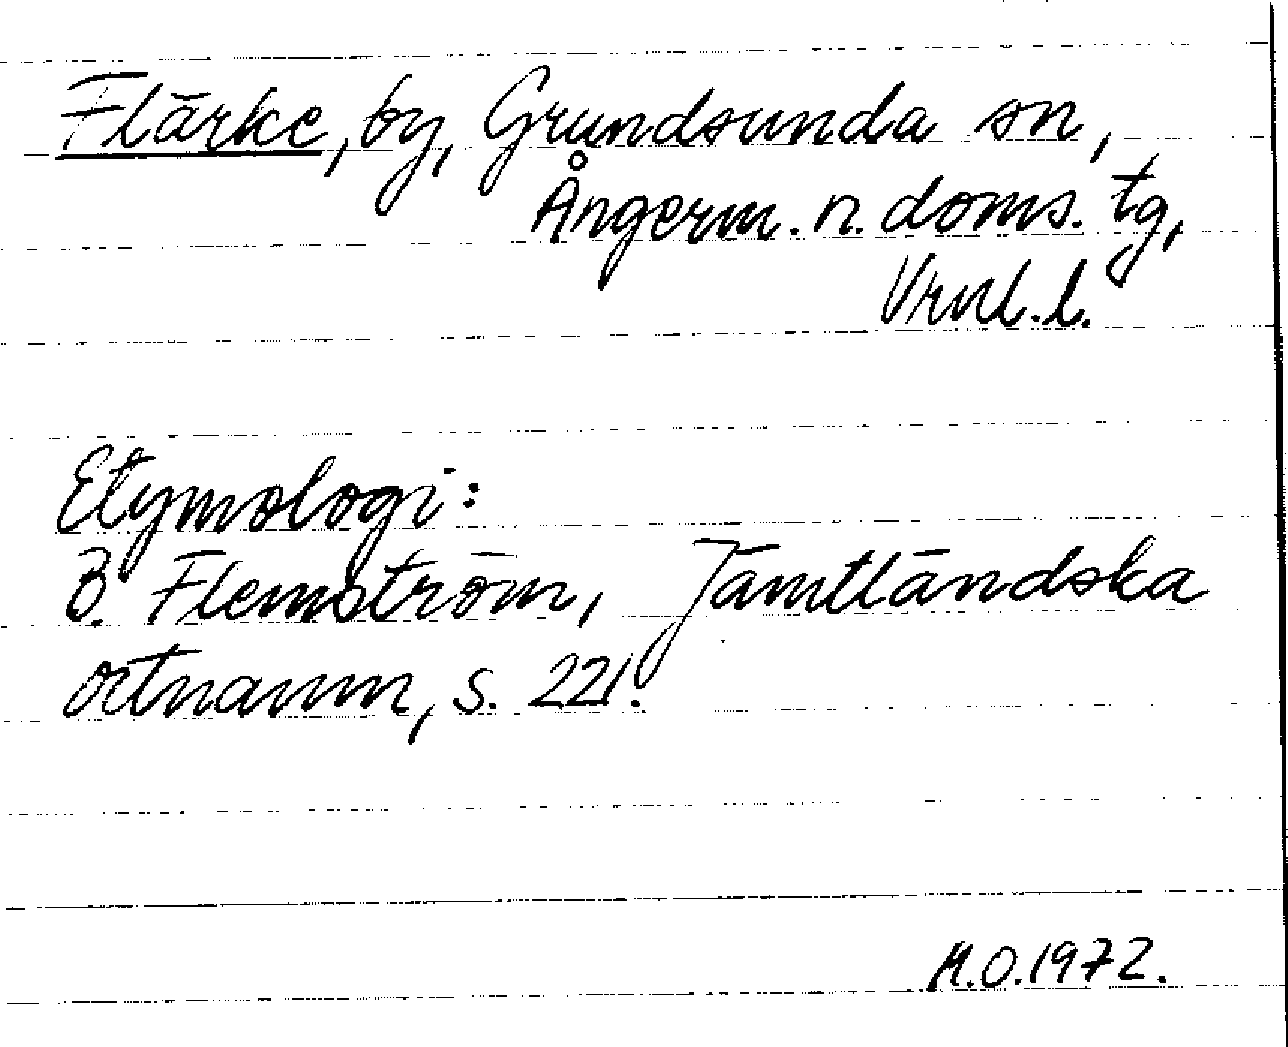 Flärke, by, Grundsunda sn,
Ångerm. n. doms. tg,
Vrnl. l.
Etymologi:
B. Flemström, Jämtländska
ortnamn, s. 221.
M.O. 1972.